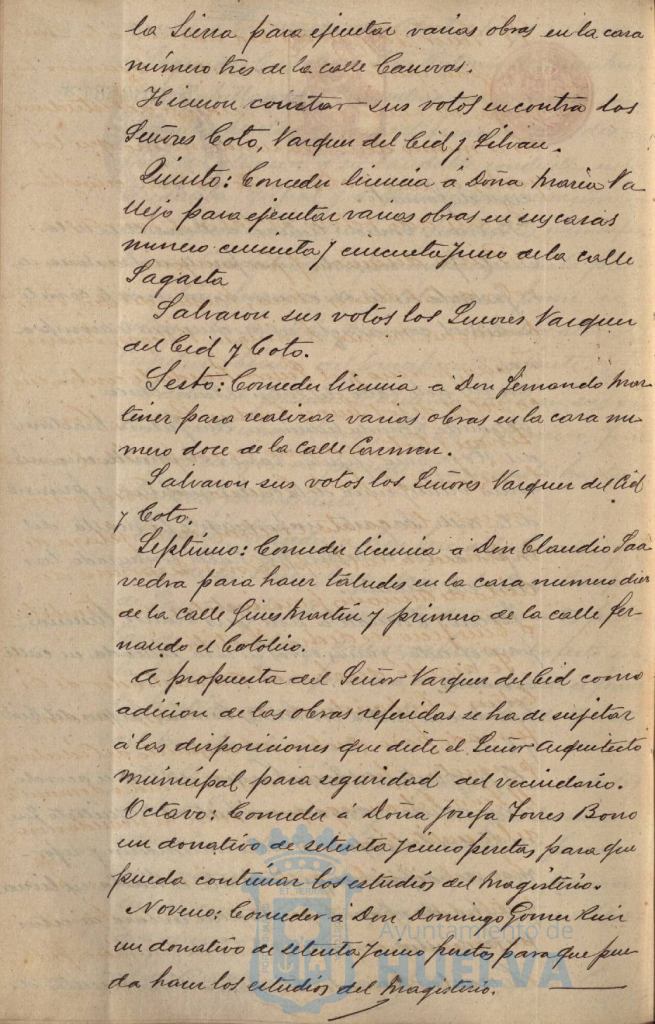 la Sierra para ejecutar varias obras en la casa
número tres de la calle Canovas.
Hicieron constar sus votos en contra los
Señores Coto, Vazquez del Cid y Silvan.
Quinto: Conceder licencia á Doña Maria Va
llejo para ejecutar varias obras en sus casas
numero cincuenta y cincuenta y uno de la calle
Sagasta
Salvaron sus votos los Señores Vazquez
del Cid y Coto.
Sesto: Conceder licencia á Don Fernando Mar
tinez para realizar varias obras en la casa nu
mero doce de la Calle Carmen.
Salvaron sus votos los Señores Vazquez del Cid
y Coto.
Septimo: Conceder licencia á Don Claudio Saa
vedra para hacer taludes en la casa numero diez
de la calle Gines Martin y primero de la calle Fer-
nando el Catolico.
A propuesta del Señor Vazquez del Cid como
adicion de las obras referidas se ha de sujetar
á las disposiciones que dicte el Señor Arquitecto
Municipal para seguridad del vecindario.
Octavo: Conceder á Doña Josefa Torres Bono
un donativo de setenta y cinco pesetas para que
pueda continuar los estudios del Magisterio.
Noveno: Conceder á Don Domingo Gomez Ruiz
un donativo de setenta y cinco pesetas para que pue-
da hacer los estudios del Magisterio.
Ayuntamiento de
HUELVA